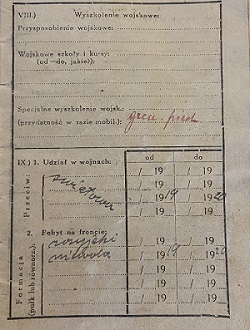 VIII.) Wyszkolenie wojskowe:
Przysposobienie wojskowe:
Wojskowe szkoły i kursy:
(od—do, jakie?):
Specjalne wyszkolenie wojsk.:
(przydatność w razie mobil.):
IX) 1. Udział w wojnach:
od do
Przeciw:
/ 19 / 19
/ 19 / 19
/ 1919 / 1920
/ 19 / 19
2. Pobyt na froncie:
Formacja
(pułk lub równorz.)
/ 19 / 19
/ 1919 / 1920
/ 19 / 19
/ 19 / 19
/ 19 / 19